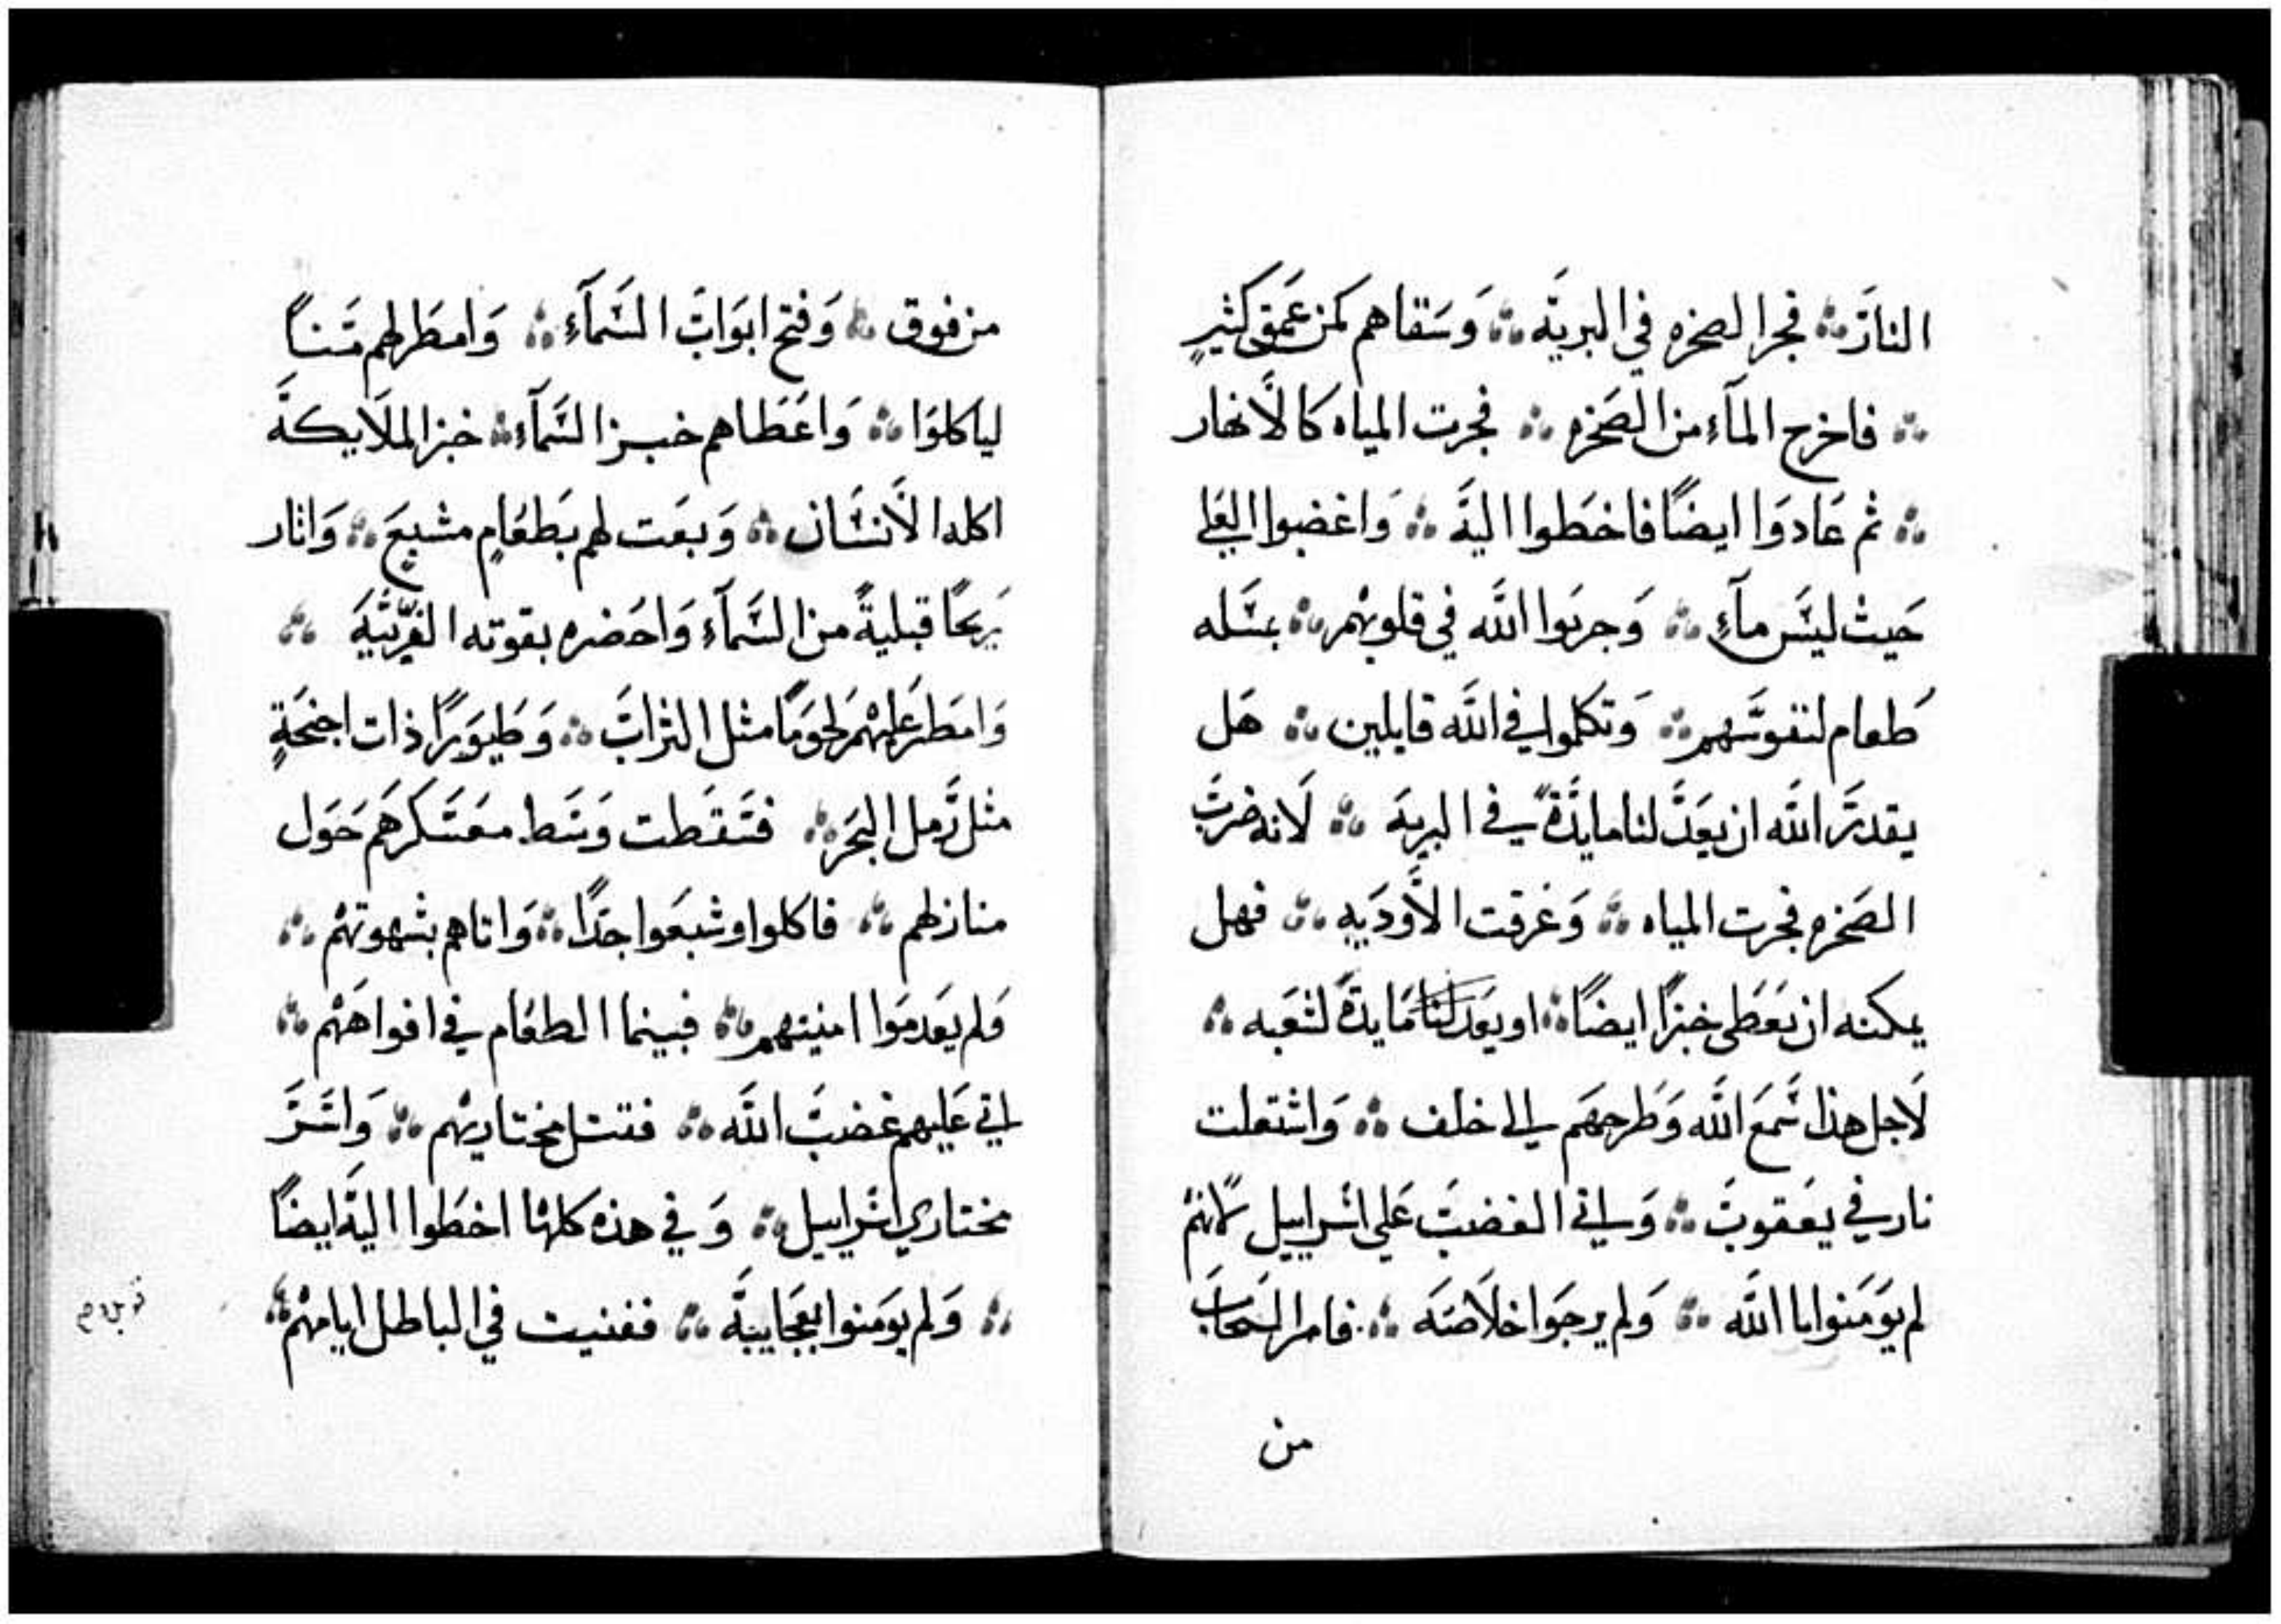 النار ∴ فجر الصخره في البريه ∴ وسقاهم كمن عمق كثير
∴ فاخرج المآء من الصخره ∴ فجرت المياه كالانهار
∴ ثم عادوا ايضًا فاخطوا اليه ∴ واغضبوا العلي
حيث ليس مآءٍ ∴ وجربوا الله في قلوبهم ∴ بمسله
طعام لنفوسهم ∴ وتكلموا في الله قايلين ∴ هل
يقدر الله ان يعد لنا مايدةً في البريه ∴ لانه ضرب
الصخره فجرت المياه ∴ وغرقت الاوديه ∴ فهل
يمكنه ان يعطى خبزًا ايضًا ∴ او يعد لنا مايدة لشعبه ∴
لاجل هذا سمع الله وطرحهم الى خلف ∴ واشتعلت
نار في يعقوب ∴ واتى الغضب على اسراييل لانهم
لم يومنوا باالله ∴ ولم يرجوا خلاصه ∴ فامر السحاب
من
من فوق ∴ وفتح ابواب السمآء ∴ وامطر لهم منًا
لياكلوا ∴ واعطاهم خبز السمآء ∴ خبز الملايكة
اكله الانسان ∴ وبعت لهم بطعامٍ مشبع ∴ واثار
ريحًا قبليةً من السمآء واحضره بقوته الغربيه ∴
وامطر عليهم لحومًا مثل التراب ∴ وطيورًا ذات اجنحةٍ
مثل رمل البحر ∴ فسقطت وسط معسكرهم حول
منازلهم ∴ فاكلوا وشبعوا جدًا ∴ واتاهم بشهوتهم ∴
ولم يعدموا امنيتهم ∴ فبينما الطعام في افواههم ∴
اتى عليهم غضب الله ∴ فقتل مختاريهم ∴ واسر
مختاري اسراييل ∴ وفي هذه كلها اخطوا اليه ايضًا
∴ ولم يومنوا بعجايبه ∴ ففنيت في الباطل ايامهم ∴